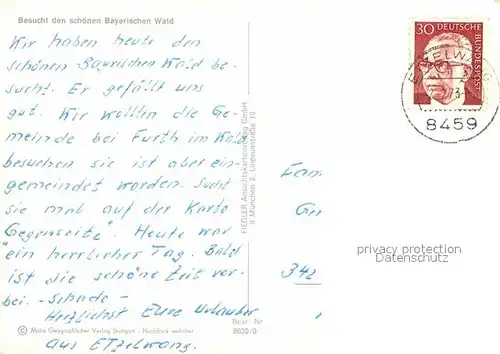 Besucht den schönen Bayerischen Wald
Wir haben heute den
schönen Bayrischen Wald be-
sucht. Er gefällt uns
gut. Wir wollten die Ge-
meinde bei Furth im Wald
besuchen sie ist aber ein-
gemeindet worden. Sucht
sie mal auf der Karte
"Gegenseite". Heute war
ein herrlicher Tag. Bald
ist die schöne Zeit vor-
bei. - Schade -
Herzlichst Eure Urlauber
aus Etzelwang.
© Mairs Geographischer Verlag Stuttgart - Nachdruck verboten
Best. Nr
8630/0
FIEDLER Ansichtskartenverlag GmbH
8 München 2, Linprunstraße 10
30 DEUTSCHE
BUNDESPOST
73
8459
Fam
Ge
342
privacy protection
Datenschutz